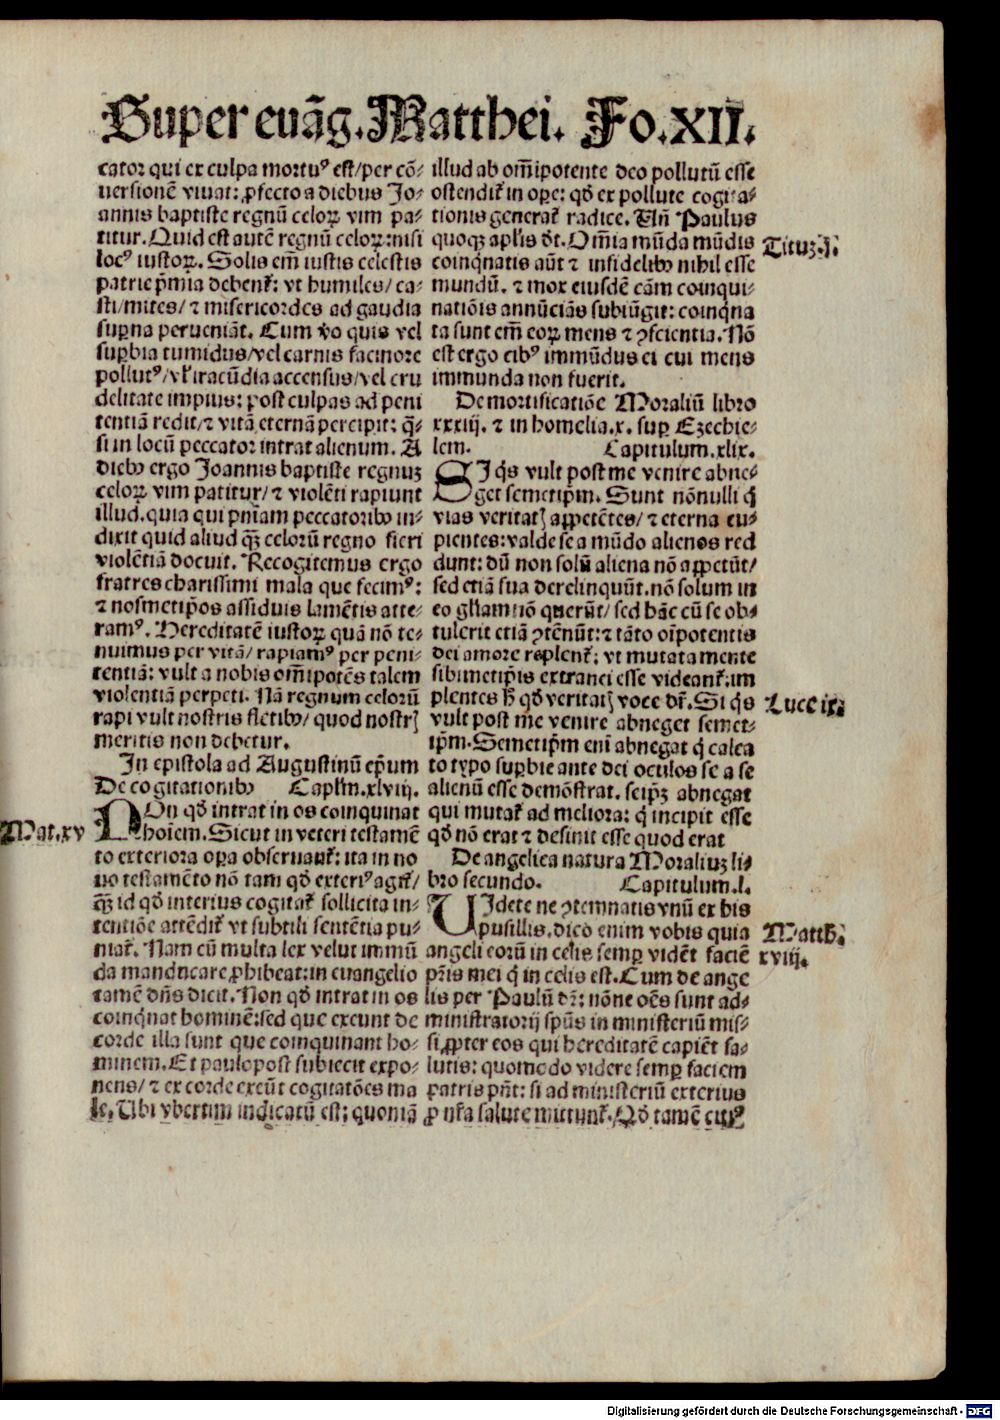 Super euāg. Matthei. Fo. XII.
cator qui ex culpa mortuꝰ est/per cō-
uersionē viuat: ꝓfecto a diebus Jo-
annis baptiste regnū celoꝝ vim pa-
titur. Quid est autē regnū celoꝝ: nisi
locꝰ iustoꝝ. Solis em̄ iustis celestis
patrie p̄mia debent᷑: vt humiles/ ca-
sti/mites/ ⁊ misericordes ad gaudia
suꝑna perueniāt. Cum v̄o quis vel
suꝑbia tumidus/vel carnis facinore
pollutꝰ/vl̓ iracūdia accensus/vel cru
delitate impius: post culpas ad peni
tentiā redit/⁊ vitā eternā percipit: q̄-
si in locū peccator intrat alienum. A
diebꝰ ergo Joannis baptiste regnuꝫ
celoꝝ vim patitur/⁊ violēti rapiunt
illud. quia qui pn̄iam peccatoribꝰ in-
dixit quid aliud qꝫ̄ celorū regno fieri
violētiā docuit. Recogitemus ergo
fratres charissimi mala que fecimꝰ:
⁊ nosmetip̄os assiduis lamētis atte-
ramꝰ. Hereditatē iustoꝝ quā nō te-
nuimus per vitā/ rapiamꝰ per peni-
tentiā: vult a nobis om̄ipotēs talem
violentiā perpeti. Nā regnum celorū
rapi vult nostris fletibꝰ/ quod nostrꝭ
meritis non debetur.
In epistola ad Augustinū ep̄um
De cogitationibꝰ Capl̓m. xlviij.
NOn qd̓ intrat in os coinquinat
hoīem. Sicut in veteri testamē
to exteriora oꝑa obseruant᷑: ita in no
uo testamēto nō tam qd̓ exteriꝰ agit᷑/
qꝫ̄ id qd̓ interius cogitat᷑ sollicita in-
tentiōe attēdit᷑ vt subtili sentētia pu-
niat᷑. Nam cū multa lex velut immū
da manducare ꝓhibeat: in euangelio
tamē dn̄s dicit. Non qd̓ intrat in os
coinq̄nat hominē: sed que exeunt de
corde illa sunt que coinquinant ho-
minem. Et paulopost subiecit expo-
nens/ ⁊ ex corde exeūt cogitatōes ma
le. Ubi vbertim indicatū est: quoniā
illud ab om̄ipotente deo pollutū esse
ostendit᷑ in oꝑe: qd̓ ex pollute cogita-
tionis generat᷑ radice. Un̄ Paulus
quoqꝫ apl̓s dt̓. Om̄ia mūda mūdis
coinq̄natis aūt ⁊ infidelibꝰ nihil esse
mundū. ⁊ mox eiusdē cām coinqui-
natiōis annūciās subiūgit: coinq̄na
ta sunt em̄ eoꝝ mens ⁊ ꝯscientia. Nō
est ergo cibꝰ immūdus ei cui mens
immunda non fuerit.
De mortificatiōe Moraliū libro
xxxiij. ⁊ in homelia. x. suꝑ Ezechie-
lem. Capitulum. xlix.
SI q̓s vult post me venire abne-
get semetip̄m. Sunt nōnulli q̓
vias veritatꝭ appetētes/ ⁊ eterna cu-
pientes: valde se a mūdo alienos red
dunt: dū non solū aliena nō appetūt/
sed etiā sua derelinquūt. nō solum in
eo gl̓iam nō querūt/ sed hāc cū se ob-
tulerit etiā ꝯtēnūt: ⁊ tāto oīpotentis
dei amore replent᷑: vt mutata mente
sibimetip̄is extranei esse videant᷑: im
plentes h̓ qd̓ veritatꝭ voce dr̄. Si q̓s
vult post me venire abneget semet-
ip̄m. Semetip̄m eni abnegat q̓ calca
to typo suꝑbie ante dei oculos se a se
alienū esse demōstrat. seip̄ꝫ abnegat
qui mutat᷑ ad meliora: q̓ incipit esse
qd̓ nō erat ⁊ desinit esse quod erat
De angelica natura Moraliuꝫ li-
bro secundo. Capitulum. l.
UIdete ne ꝯtemnatis vnū ex his
pusillis. dico enim vobis quia
angeli eorū in celis semꝑ vidēt faciē
p̄ris mei q̓ in celis est. Cum de ange
lis per Paulū dr̄: nōne oēs sunt ad-
ministratorij spūs in ministeriū mis-
si ꝓpter eos qui hereditatē capiēt sa-
lutis: quomodo videre semꝑ faciem
patris pn̄t: si ad ministeriū exterius
ꝓ nr̄a salute mittunt᷑. Qd̓ tamē citiꝰ
Tituꝫ. j.
Luce ix.
Mat. xv
Matth.
xviij.
Digitalisierung gefördert durch die Deutsche Forschungsgemeinschaft - DFG